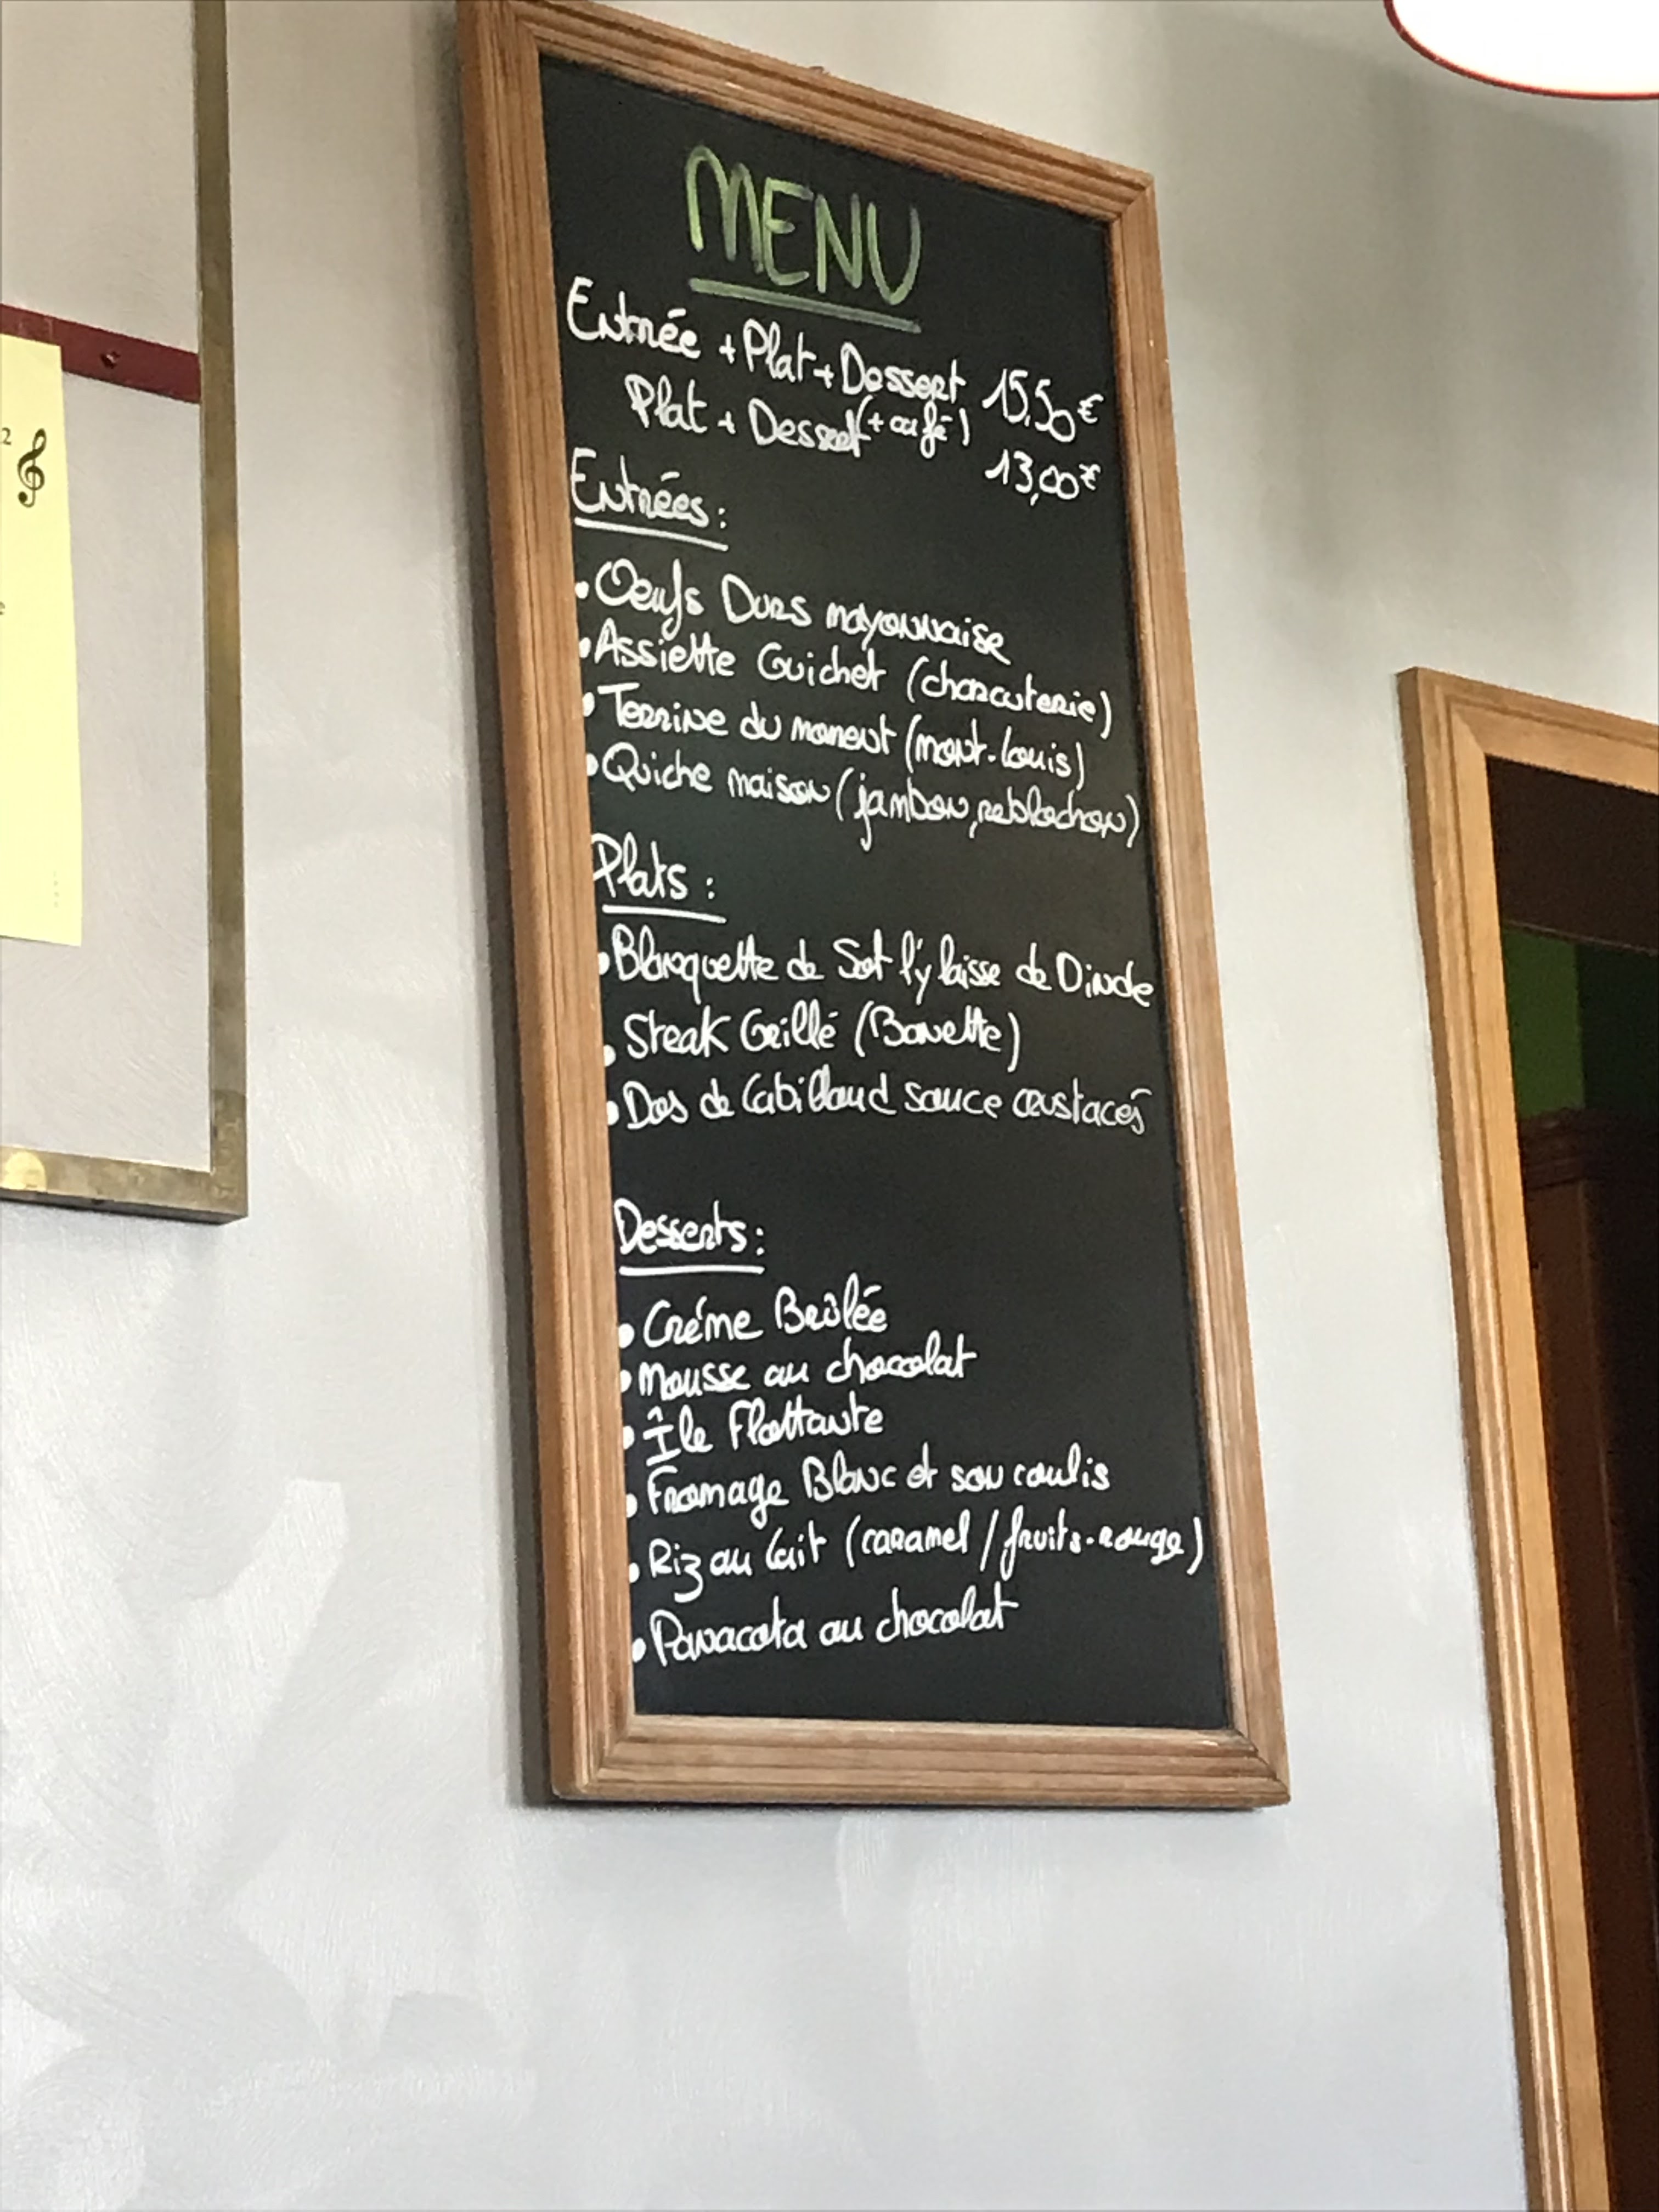 MENU
Entrée + Plat + Dessert 15,50€
Plat + Dessert (+ café) 13,00€
Entrées :
• Oeufs Durs mayonnaise
• Assiette Guichet (charcuterie)
• Terrine du moment (mont-louis)
• Quiche maison (jambon, reblochon)
Plats :
• Blanquette de Sot l'y laisse de Dinde
• Steak Grillé (Bavette)
• Dos de Cabillaud sauce crustacés
Desserts :
• Créme Brûlée
• Mousse au chocolat
• Île Flottante
• Fromage Blanc et son coulis
• Riz au lait (caramel / fruits-rouge)
• Panacota au chocolat
2